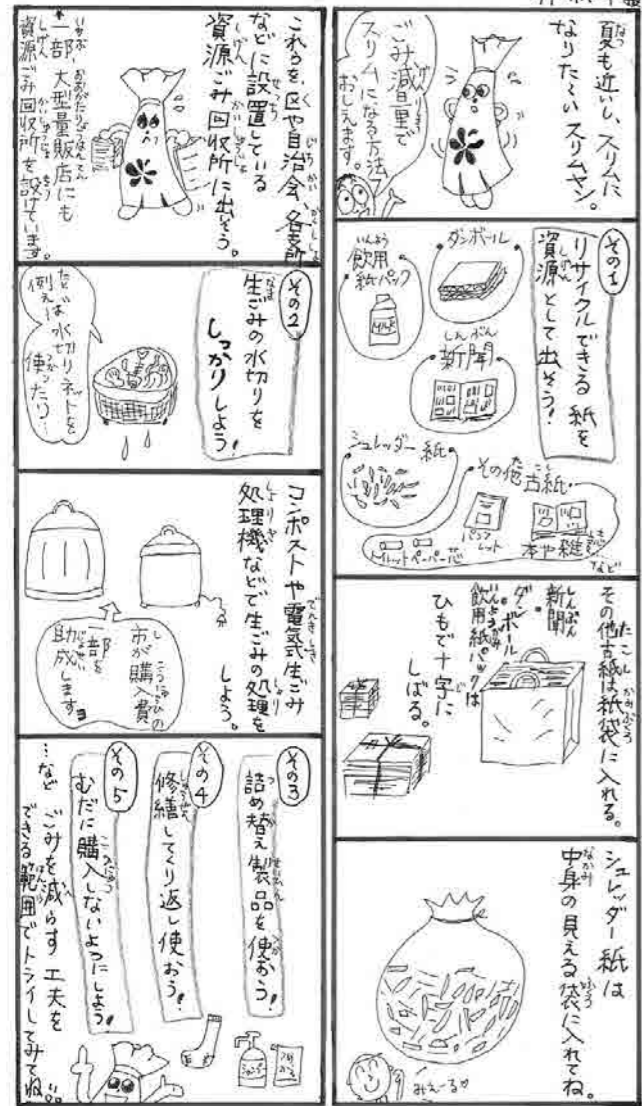 夏も近いし、スリムに
なりた～いスリムヤン。
ごみ減量で
スリムになる方法
おしえます。
その1
リサイクルできる紙を
資源として出そう!
ダンボール
飲用
紙パック
MILK
新聞
シュレッダー紙
その他古紙
パンフ
レット
本や雑誌
トイレットペーパー芯
など
その他古紙は紙袋に入れる。
新聞・
ダンボール・
飲用紙パックは
ひもで十字に
しばる。
シュレッダー紙は
中身の見える袋に入れてね。
みえーる♡
これらを、区や自治会、各支所
などに設置している
資源ごみ回収所に出そう。
*一部、大型量販店にも
資源ごみ回収所を設けています。
その2
生ごみの水切りを
しっかりしよう!
例えば水切りネットを
使ったり…
コンポストや電気式生ごみ
処理機などで生ごみの処理を
しよう。
市が購入費の
一部を
助成します
その3
詰め替え製品を使おう!
その4
修繕してくり返し使おう!
その5
むだに購入しないようにしよう!
…など
ごみを減らす工夫を
できる範囲でトライしてみてね
シャンプー